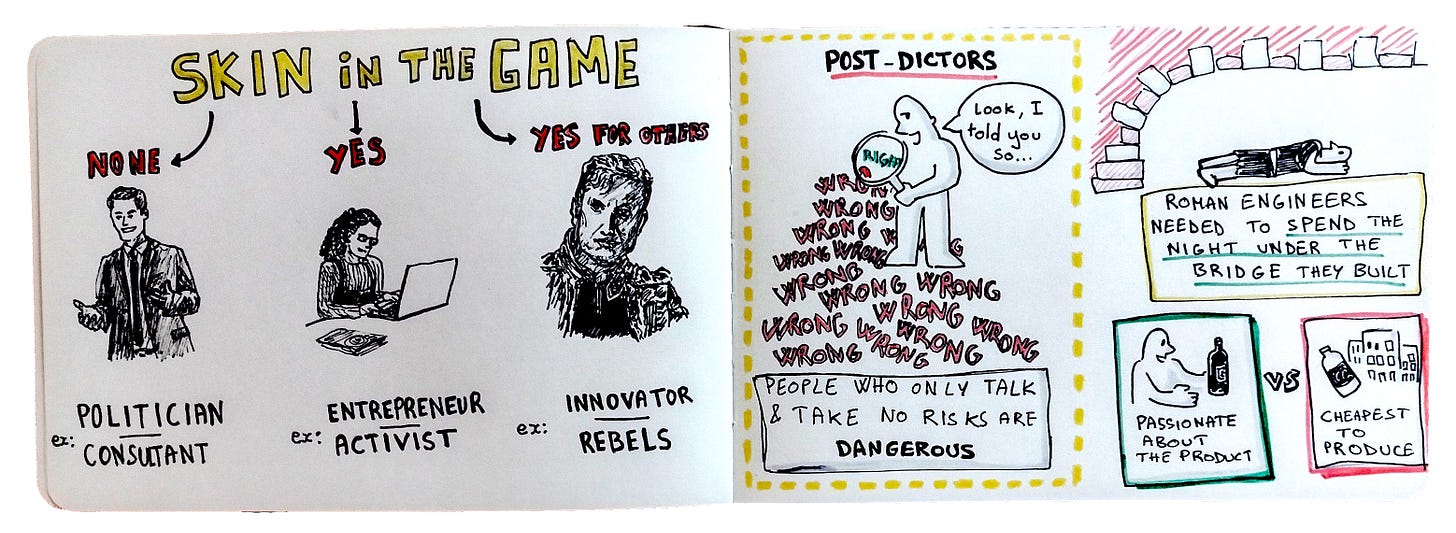 SKIN iN THE GAME
NONE
YES
YES FOR OTHERS
POLITICIAN
ex: CONSULTANT
ENTREPRENEUR
ex: ACTIVIST
INNOVATOR
ex: REBELS
POST-DICTORS
Look, I
told you
so...
RIGHT
WRONG
WRONG
WRONG W
G
WRONG WRONG
WRONG
WRONG WRONG
WRONG
WRONG WRONG WRONG WRONG
WRONG WRONG WRONG
PEOPLE WHO ONLY TALK
& TAKE NO RISKS ARE
DANGEROUS
ROMAN ENGINEERS
NEEDED TO SPEND THE
NIGHT UNDER THE
BRIDGE THEY BUILT
PASSIONATE
ABOUT
THE PRODUCT
VS
CHEAPEST
TO
PRODUCE